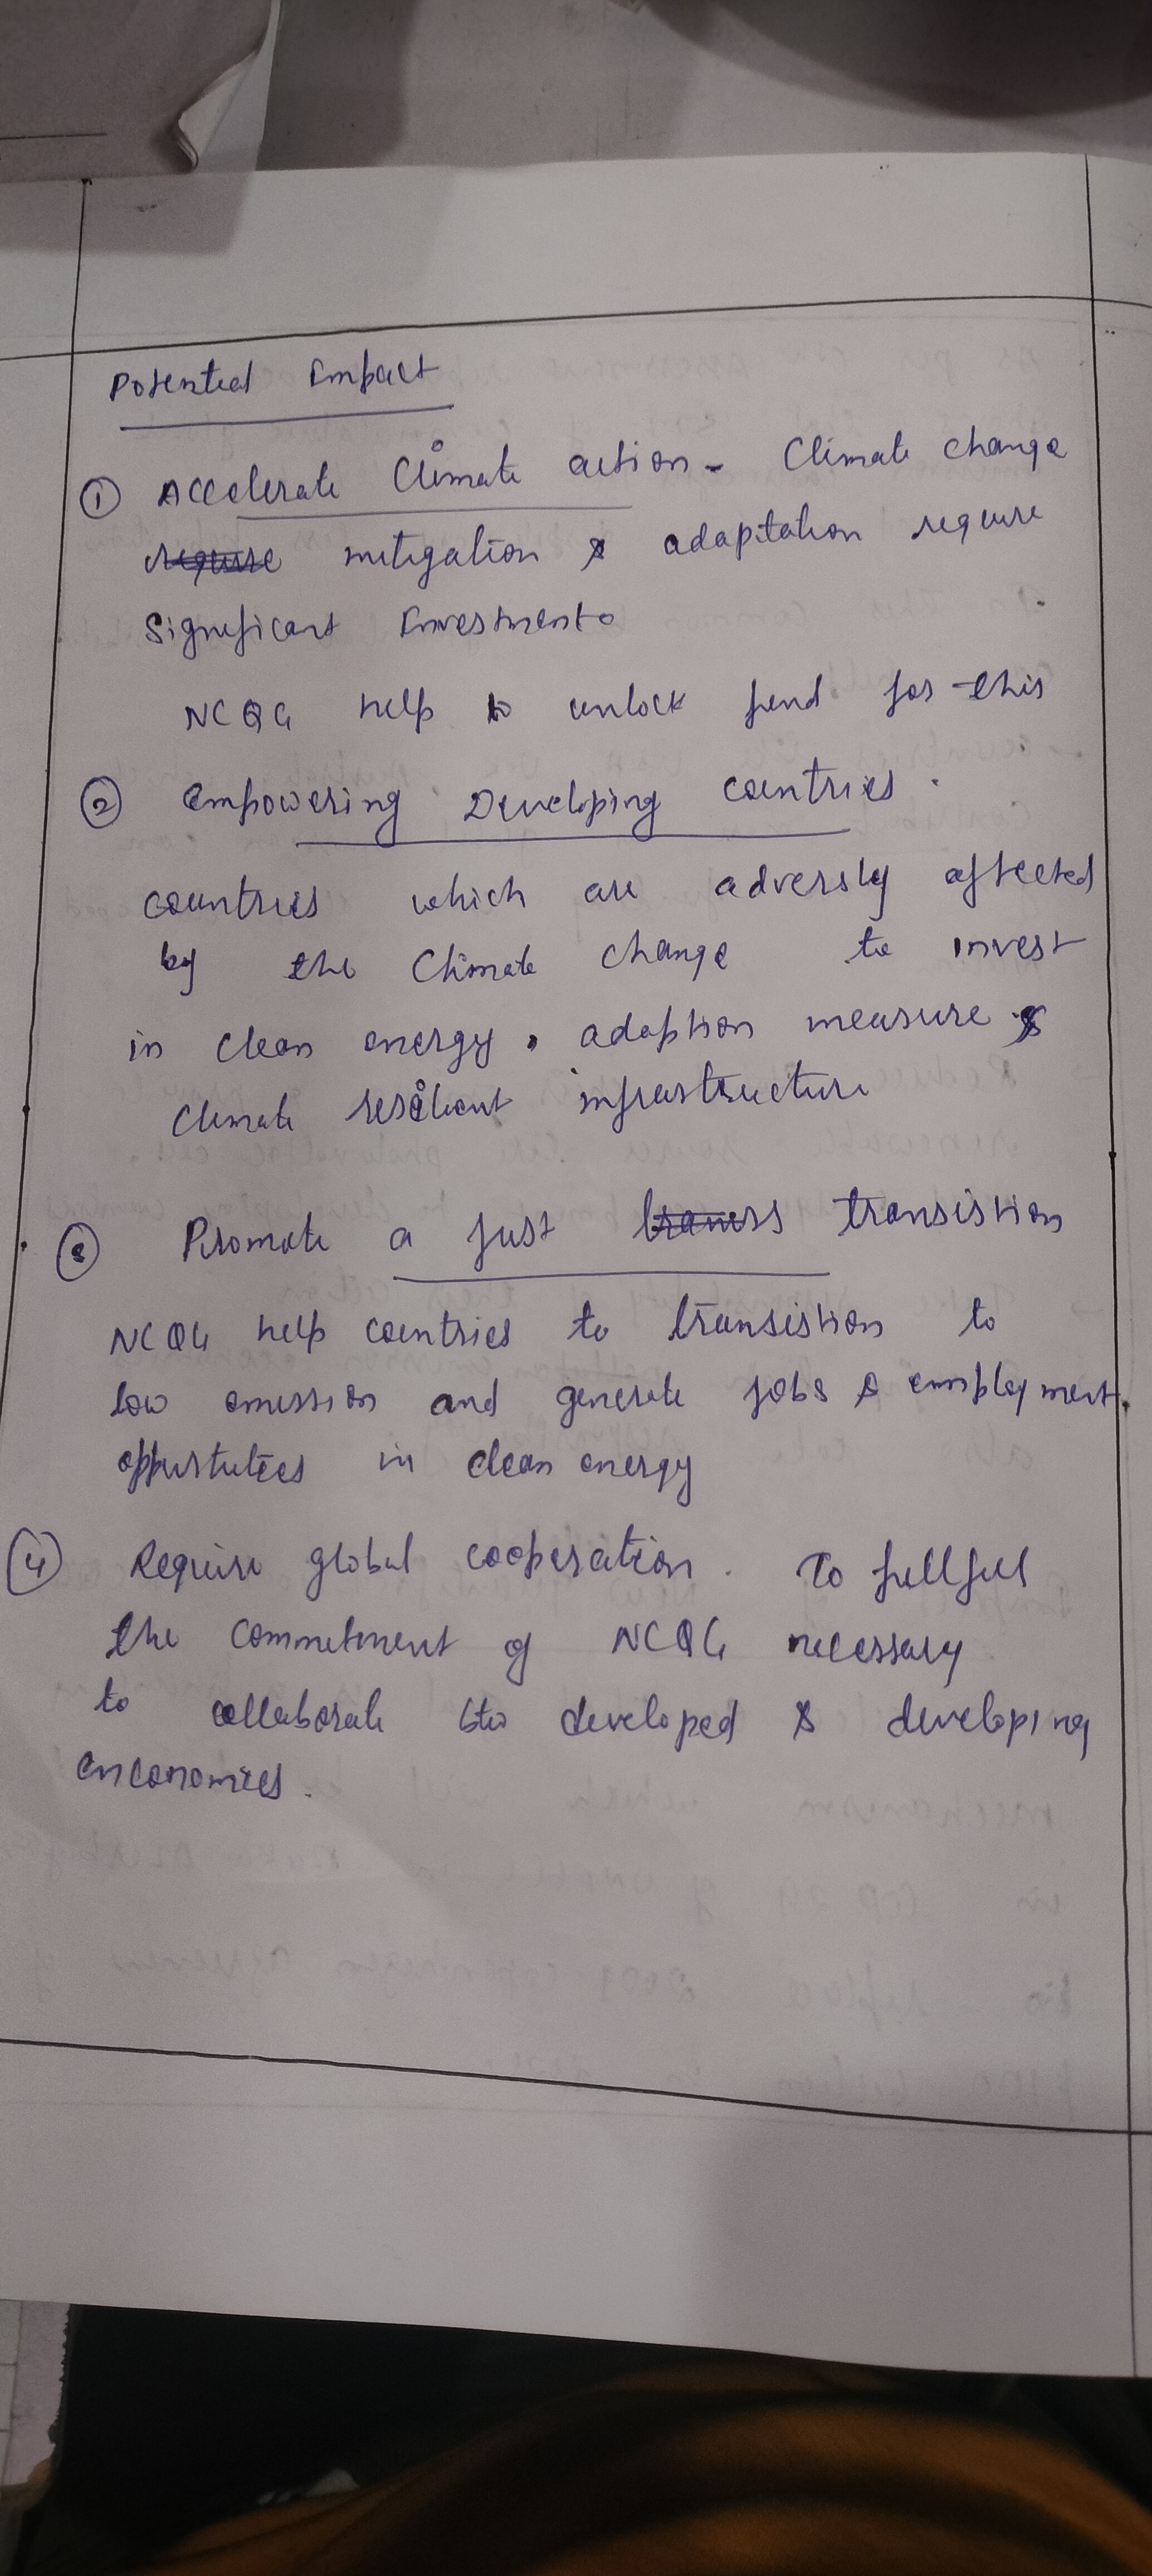 Potential Impact
① Accelerate Climate action - Climate change
require mitigation & adaptation require
Significant Investment
NCQG help to unlock fund for this
② Empowering Developing countries.
countries which are adversly affected
by the Climate change to invest
in clean energy, adaption measure &
Climate resilient infrastructure
③ Promote a just transs transistion
NCQG help countries to transistion to
low emission and generate jobs & employment
oppurtuties in clean energy
④ Require global cooperation. To fullfill
the commitment of NCQG necessary
to collaborate btw developed & developing
enconomies.